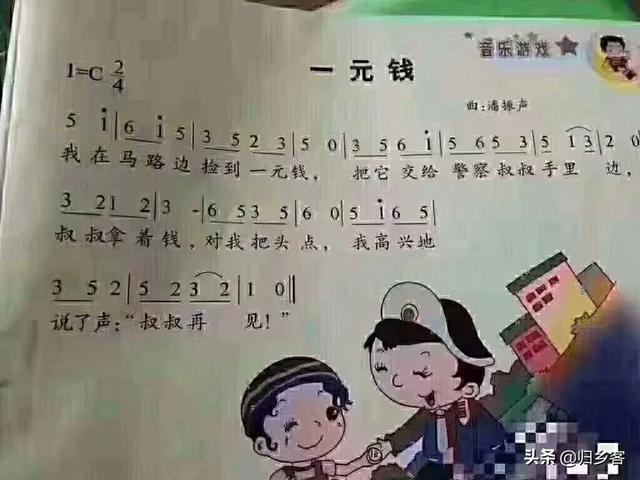 音乐游戏
一元钱
1=C 2/4
曲:潘振声
5 i|6 i 5|3 5 2 3|5 0|3 5 6 i|5 6 5 3|5 i 3|2 0
我在马路边捡到一元钱， 把它交给警察叔叔手里 边，
3 2 1 2|3 -|6 5 3 5|6 0|5 i 6 5|
叔叔拿着钱，对我把头点， 我高兴地
3 5 2|5 2 3 2|1 0‖
说了声:“叔叔再 见！”
头条 @归乡客